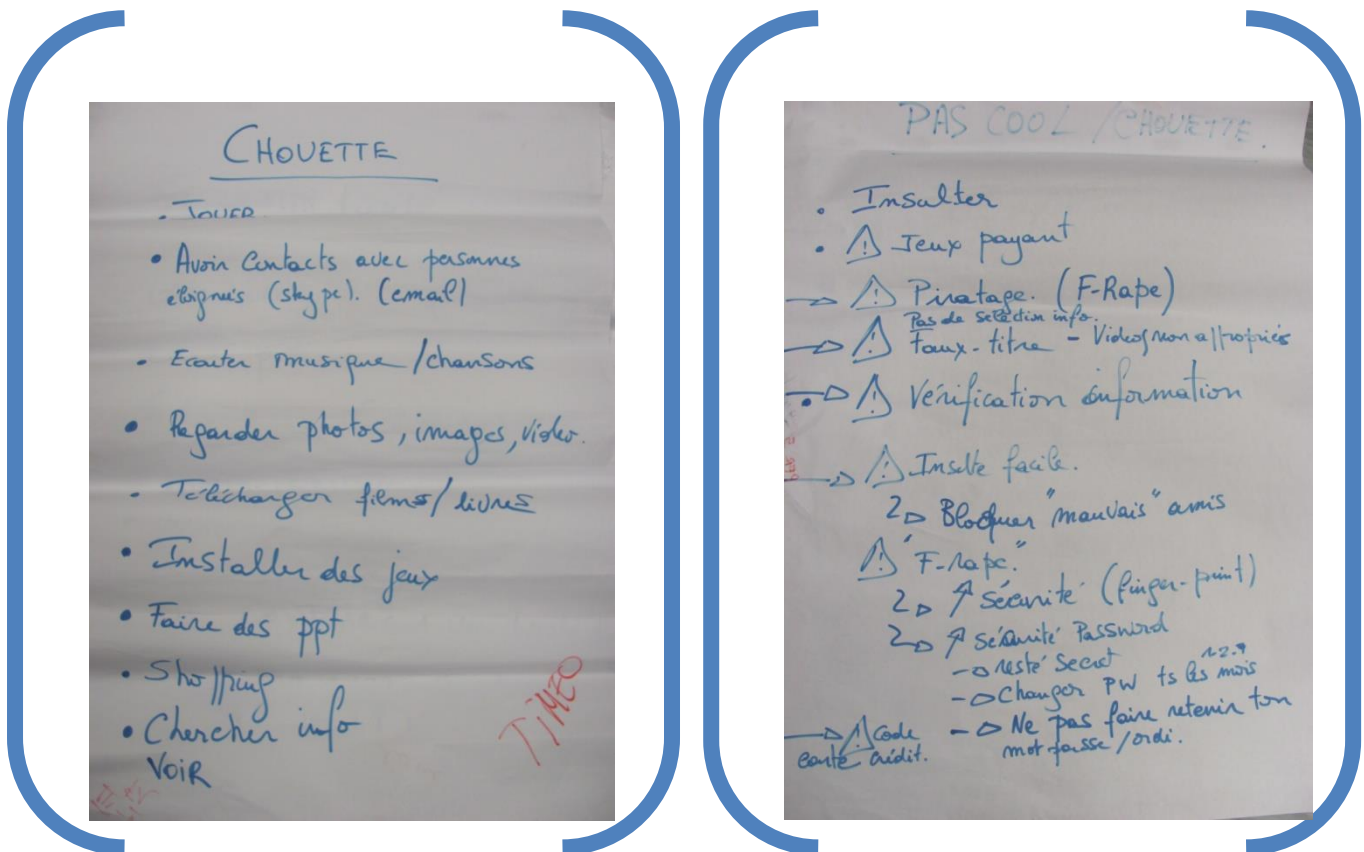 CHOUETTE
. JOUER
• Avoir Contacts avec personnes
eloignés (skype). (email)
• Ecouter musique/chansons
• Regarder photos, images, video.
• Télécharger films/livres
• Installer des jeux
• Faire des ppt
• Shopping
• Chercher info
VOIR
TiMEO
PAS COOL / CHOUETTE.
• Insulter
• ⚠ Jeux payant
→ ⚠ Piratage. (F-Rape)
Pas de sélection info.
→ ⚠ faux-titre - Videos non appropriés
→ • ⚠ Vérification information
→ ⚠ Insulte facile.
↳ Bloquer "mauvais" amis
⚠ "F-rape."
↳ ↗ sécurité (finger-print)
↳ ↗ sécurité Password
→ resté secret
→ Changer PW ts les mois
→ Ne pas faire retenir ton
mot passe/ordi.
→ ⚠ Code
carte crédit.